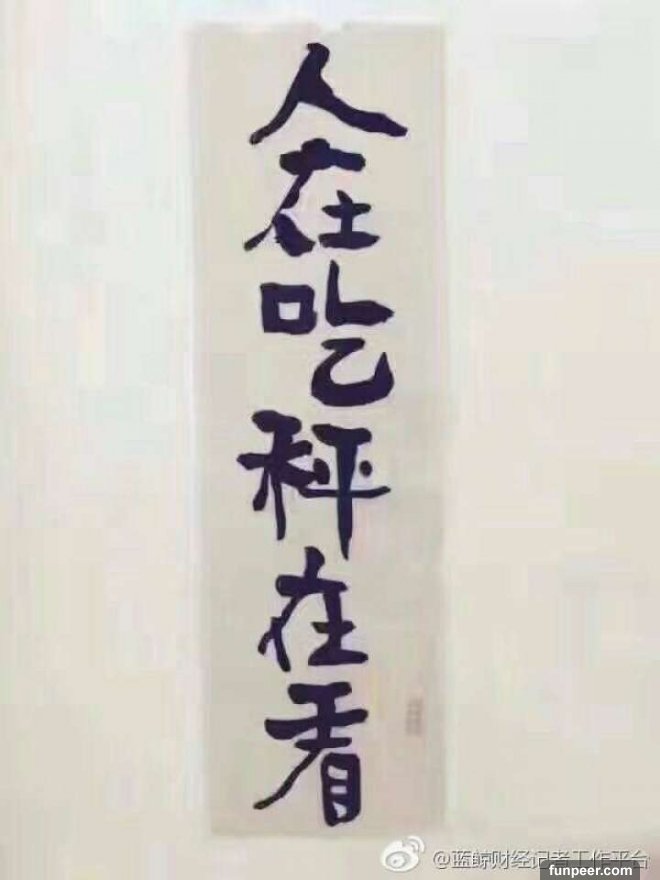 人在吃秤在看
@蓝鲸财经记者工作平台
funpeer.com